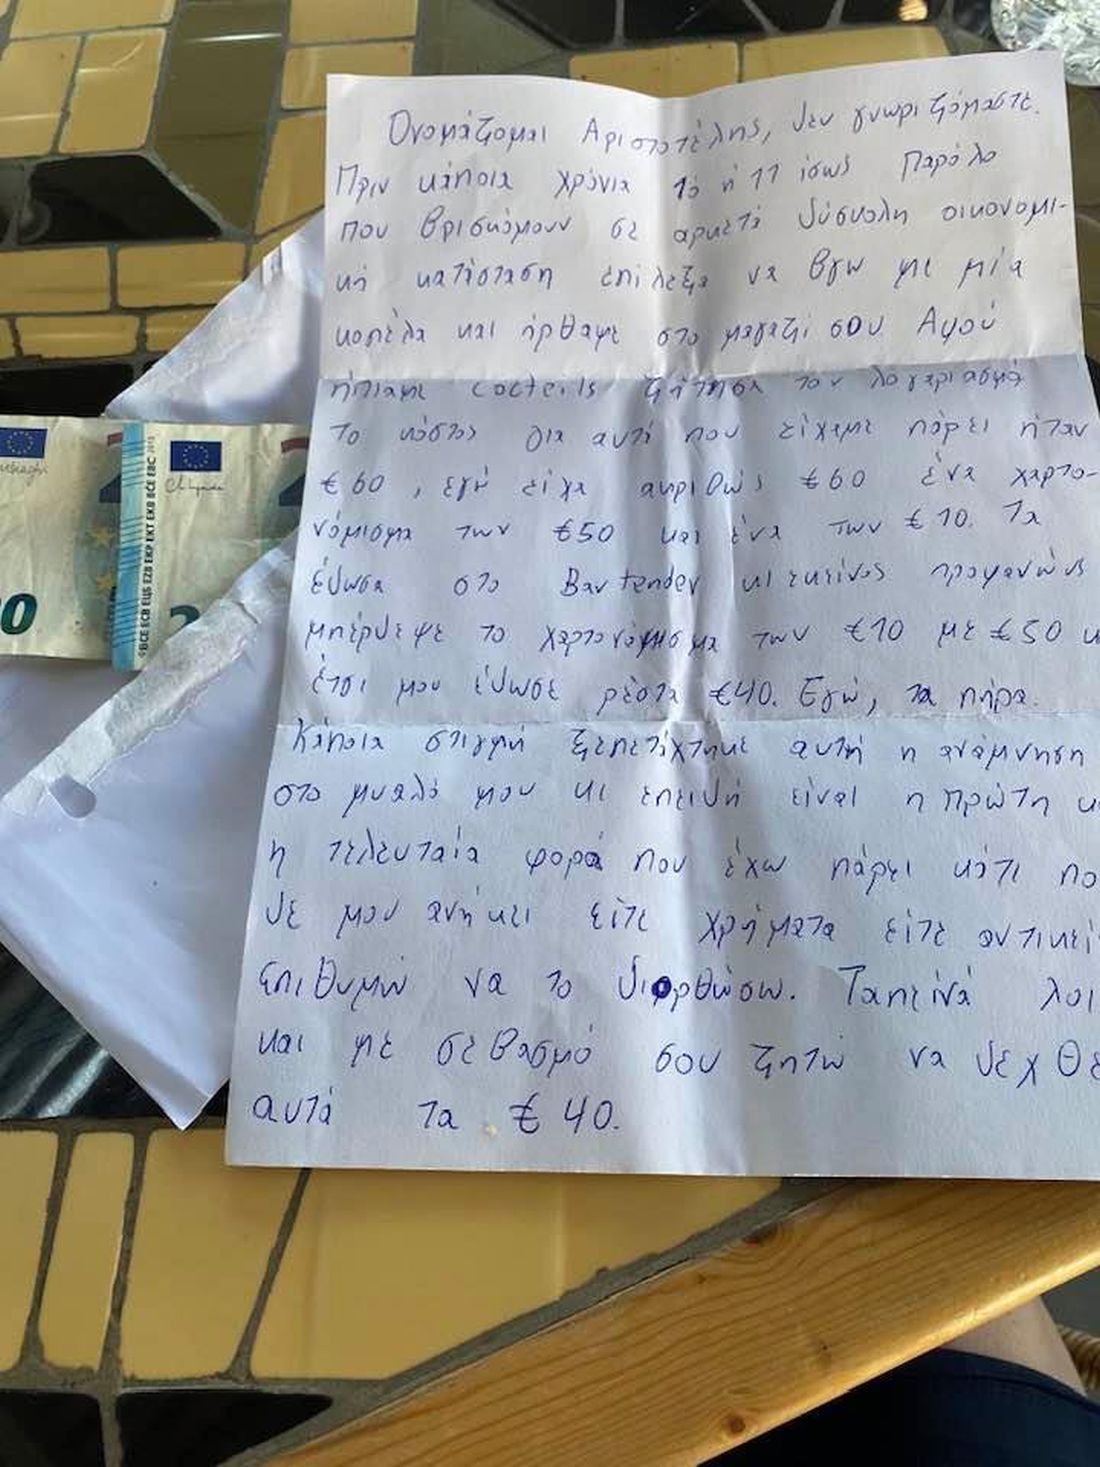 Ονομάζομαι Αριστοτέλης, δεν γνωριζόμαστε.
Πριν κάποια χρόνια 10 ή 11 ίσως Παρόλο
που βρισκόμουν σε αρκετά δύσκολη οικονομι-
κή κατάσταση επίλεξα να βγω με μία
κοπέλα και ήρθαμε στο μαγαζί σου Αφού
ήπιαμε cocteils ζήτησα τον λογαριασμό
το κόστος για αυτά που είχαμε πάρει ήταν
€60, εγώ είχα ακριβώς €60 ένα χαρτο-
νόμισμα των €50 και ένα των €10. Τα
έδωσα στο Bartender κι εκείνος προφανώς
μπέρδεψε το χαρτονόμισμα των €10 με €50 κ
έτσι μου έδωσε ρέστα €40. Εγώ, τα πήρα.
Κάποια στιγμή ξεπετάχτηκε αυτή η ανάμνηση
στο μυαλό μου κι επειδή είναι η πρώτη κ
η τελευταία φορά που έχω πάρει κάτι πο
δε μου ανήκει είτε χρήματα είτε αντικεί
Επιθυμώ να το διορθώσω. Ταπεινά λοι
και με σεβασμό σου ζητώ να δεχθε
αυτά τα €40.
BCE ECB ЕЦБ EZB EKP EKT EKB BĊE EBC